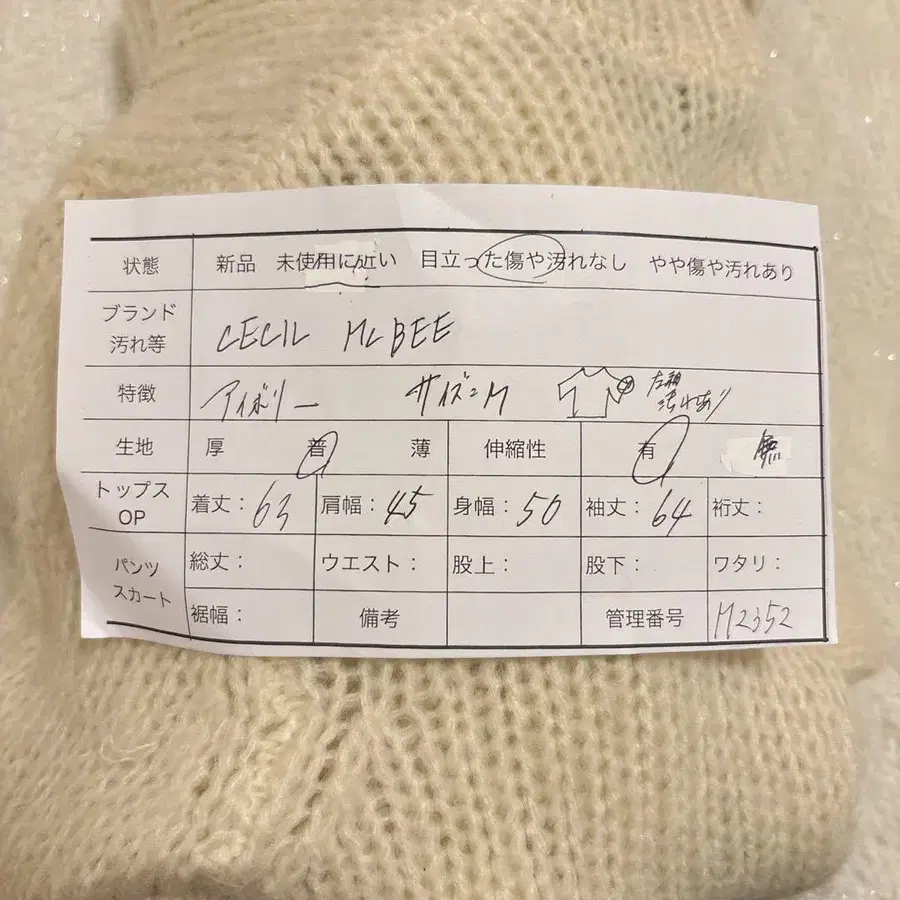 状態 新品 未使用に近い 目立った傷や汚れなし やや傷や汚れあり
ブランド
汚れ等 CECIL McBEE
特徴 アイボリー サイズ=M 左袖
汚れあり
生地 厚 普 薄 伸縮性 有 無
トップス
OP 着丈:63 肩幅:45 身幅:50 袖丈:64 裄丈:
パンツ
スカート 総丈: ウエスト: 股上: 股下: ワタリ:
裾幅: 備考 管理番号 M2352